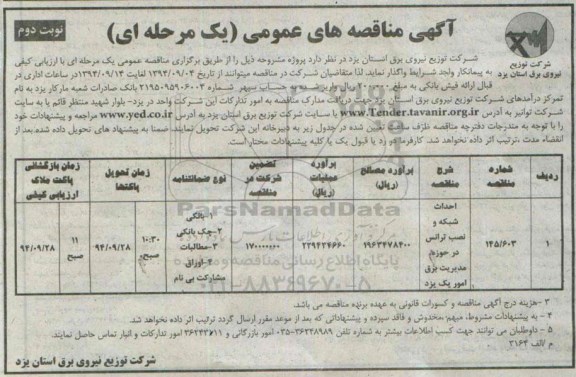 نوبت دوم
آگهی مناقصه های عمومی (یک مرحله ای)
شرکت توزیع
نیروی برق استان یزد
شرکت توزیع نیروی برق استان یزد در نظر دارد پروژه مشروحه ذیل را از طریق برگزاری مناقصه عمومی یک مرحله ای با ارزیابی کیفی
به پیمانکار واجد شرایط واگذار نماید. لذا متقاضیان شرکت در مناقصه میتوانند از تاریخ ۱۳۹۴/۰۹/۰۴ لغایت ۱۳۹۴/۰۹/۱۴ در ساعات اداری در
قبال ارائه فیش بانکی به مبلغ ریال واریز شده به حساب سپهر شماره ۲۱۹۵۰۹۵۹۰۶۰۰۳ بانک صادرات شعبه مارکار یزد به نام
تمرکز درآمدهای شرکت توزیع نیروی برق استان یزد جهت دریافت مدارک مناقصه به امور تدارکات این شرکت واحد در یزد- بلوار شهید منتظر قائم یا به سایت
شرکت توانیر به آدرس www.Tender.tavanir.org.ir یا سایت شرکت توزیع برق استان یزد به آدرس www.yed.co.ir مراجعه و پیشنهادات خود
را با توجه به مندرجات دفترچه مناقصه ظرف مدت تعیین شده در جدول زیر به دبیرخانه این شرکت تحویل نمایند. ضمنا به پیشنهاد های تحویل داده شده بعد از
انقضاء مدت ،ترتیب اثر داده نخواهد شد. کارفرما در رد یا قبول یک یا کلیه پیشنهادات مختار است.
ردیف | شماره مناقصه | شرح مناقصه | برآورد مصالح (ریال) | برآورد عملیات (ریال) | تضمین شرکت در مناقصه | نوع ضمانتنامه | زمان تحویل پاکتها | زمان بازگشائی پاکت ملاک ارزیابی کیفی
۱ | ۱۴۵/۶۰۳ | احداث شبکه و نصب ترانس در حوزه مدیریت برق امور یک یزد | ۱۹۶۳۴۷۸۴۰۰ | ۲۲۹۴۲۴۶۶۰ | ۱۷۰۰۰۰۰۰۰ | ۱-بانکی ۲-چک بانکی ۳-مطالبات ۴-اوراق مشارکت بی نام | ۱۰:۳۰ صبح ۹۴/۰۹/۲۸ | ۱۱ صبح ۹۴/۰۹/۲۸
ParsNamadData
پایگاه اطلاع رسانی مناقصه و مزایده
۰۲۱-۸۸۳۴۹۶۷۰-۵
۳ -هزینه درج آگهی مناقصه و کسورات قانونی به عهده برنده مناقصه می باشد.
۴ - به پیشنهادات مشروط، مبهم ،مخدوش و فاقد سپرده و پیشنهاداتی که بعد از موعد مقرر ارسال گردد ترتیب اثر داده نخواهد شد.
۵ - داوطلبان می توانند جهت کسب اطلاعات بیشتر به شماره تلفن ۳۶۲۴۸۹۸۹-۰۳۵ امور بازرگانی و ۳۶۲۴۳۰۱۱ امور تدارکات و انبار تماس حاصل نمایند.
م /الف ۲۱۶۴
شرکت توزیع نیروی برق استان یزد